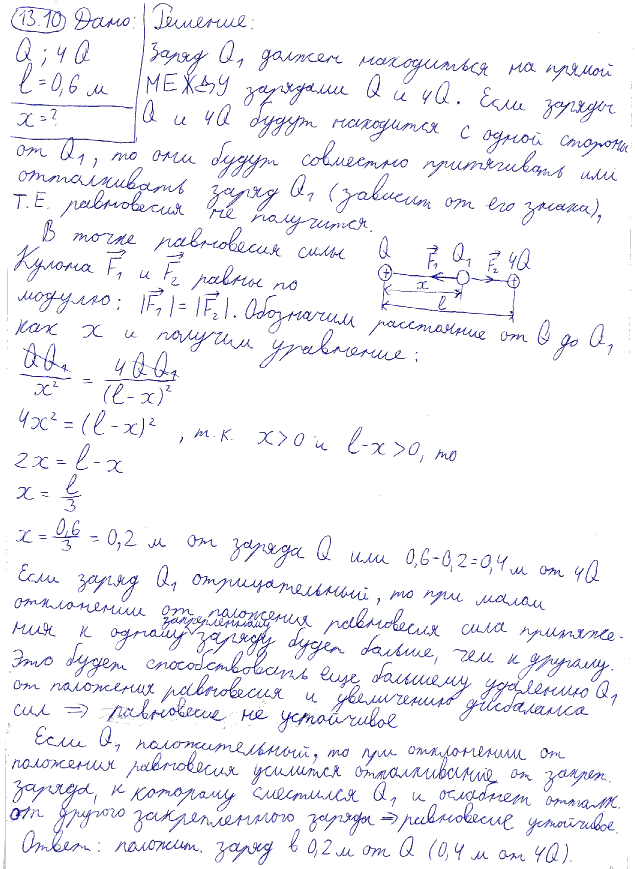 13.10 Дано: Решение:
Q; 4Q Заряд Q₁ должен находиться на прямой
l = 0,6 м МЕЖДУ зарядами Q и 4Q. Если заряды
x = ? Q и 4Q будут находится с одной стороны
от Q₁, то они будут совместно притягивать или
отталкивать заряд Q₁ (зависит от его знака),
Т.Е. равновесия не получится.
В точке равновесия силы
Кулона F⃗₁ и F⃗₂ равны по
модулю: |F⃗₁| = |F⃗₂|. Обозначим расстояние от Q до Q₁
Q F⃗₁ Q₁ F⃗₂ 4Q
+ +
x
l
как x и получим уравнение:
QQ₁/x² = 4QQ₁/(l-x)²
4x² = (l-x)², т.к. x>0 и l-x>0, то
2x = l-x
x = l/3
x = 0,6/3 = 0,2 м от заряда Q или 0,6-0,2=0,4 м от 4Q
Если заряд Q₁ отрицательный, то при малом
отклонении от положения равновесия сила притяже-
ния к одному закрепленному заряду будет больше, чем к другому.
Это будет способствовать еще большему удалению Q₁
от положения равновесия и увеличению дисбаланса
сил ⇒ равновесие не устойчивое
Если Q₁ положительный, то при отклонении от
положения равновесия усилится отталкивание от закреп.
заряда, к которому сместился Q₁ и ослабнет отталк.
от другого закрепленного заряда ⇒ равновесие устойчивое.
Ответ: положит. заряд в 0,2 м от Q (0,4 м от 4Q).